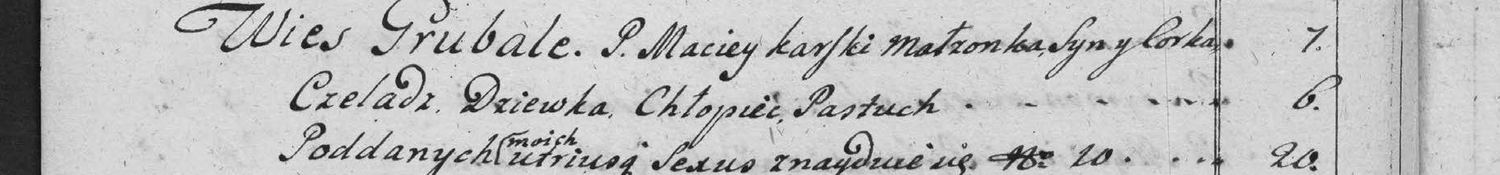 Wies Grubale. P. Maciey Karski Małzonka, Syn y Corka. 7.
Czeladz. Dziewka, Chłopiec, Pastuch . - - - - - 6.
Poddanych moich utriusq Sexus znayduie się No 20. . . . 20.